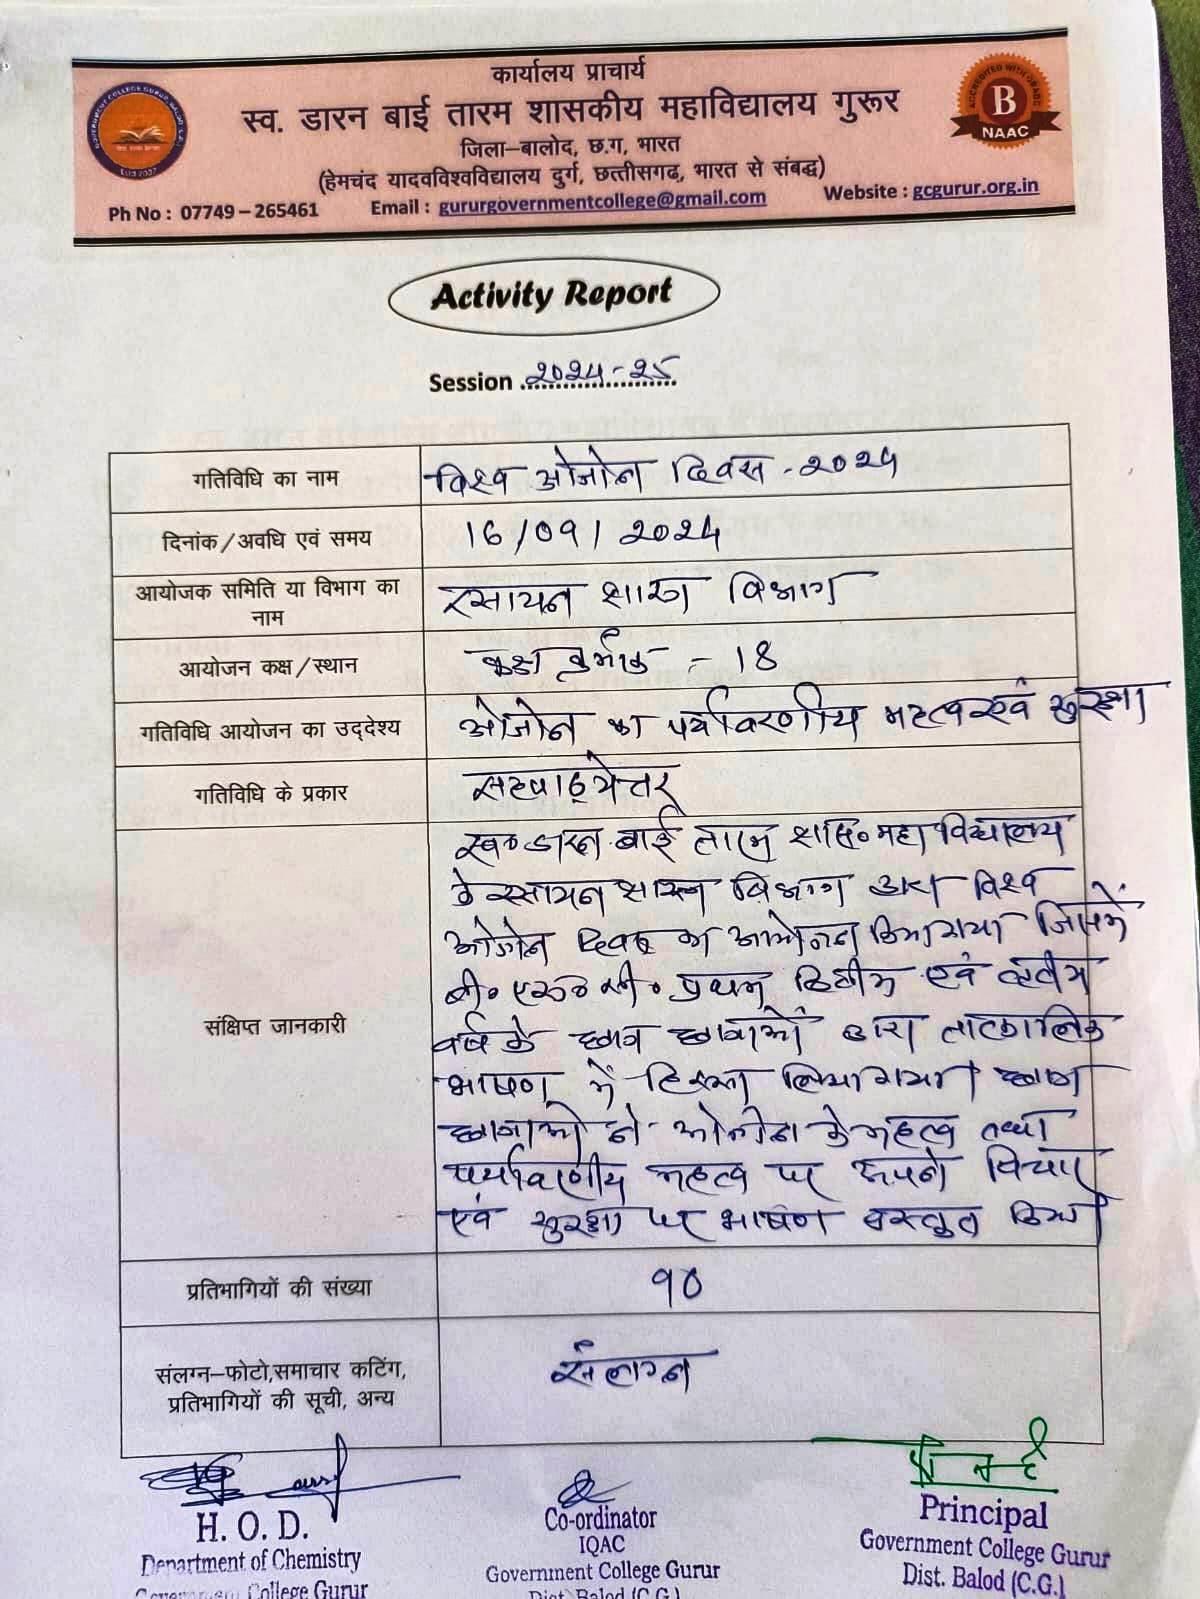 कार्यालय प्राचार्य
स्व. डारन बाई तारम शासकीय महाविद्यालय गुरूर
जिला–बालोद, छ.ग, भारत
(हेमचंद यादवविश्वविद्यालय दुर्ग, छत्तीसगढ, भारत से संबद्ध)
Ph No : 07749 – 265461 Email : gururgovernmentcollege@gmail.com Website : gcgurur.org.in
B
NAAC
Activity Report
Session २०२४-२५
गतिविधि का नाम विश्व ओजोन दिवस - २०२४
दिनांक/अवधि एवं समय 16/09/२०२४
आयोजक समिति या विभाग का नाम रसायन शास्त्र विभाग
आयोजन कक्ष/स्थान कक्ष क्रमांक - 18
गतिविधि आयोजन का उद्देश्य ओजोन का पर्यावरणीय महत्व एवं सुरक्षा
गतिविधि के प्रकार सहपाठ्येत्तर
संक्षिप्त जानकारी
स्व० डारन बाई तारम शास० महाविद्यालय
के रसायन शास्त्र विभाग द्वारा विश्व
ओजोन दिवस का आयोजन किया गया जिसमें
बी० एस० सी० प्रथम द्वितीय एवं तृतीय
वर्ष के छात्र छात्राओं द्वारा तात्कालिक
भाषण में हिस्सा लिया गया। छात्र
छात्राओं ने ओजोन के महत्व तथा
पर्यावरणीय महत्व पर अपने विचार
एवं सुरक्षा पर भाषण प्रस्तुत किया
प्रतिभागियों की संख्या १०
संलग्न–फोटो,समाचार कटिंग,
प्रतिभागियों की सूची, अन्य
संलग्न
H. O. D.
Department of Chemistry
Government College Gurur
Co-ordinator
IQAC
Government College Gurur
Dist. Balod (C.G.)
Principal
Government College Gurur
Dist. Balod (C.G.)